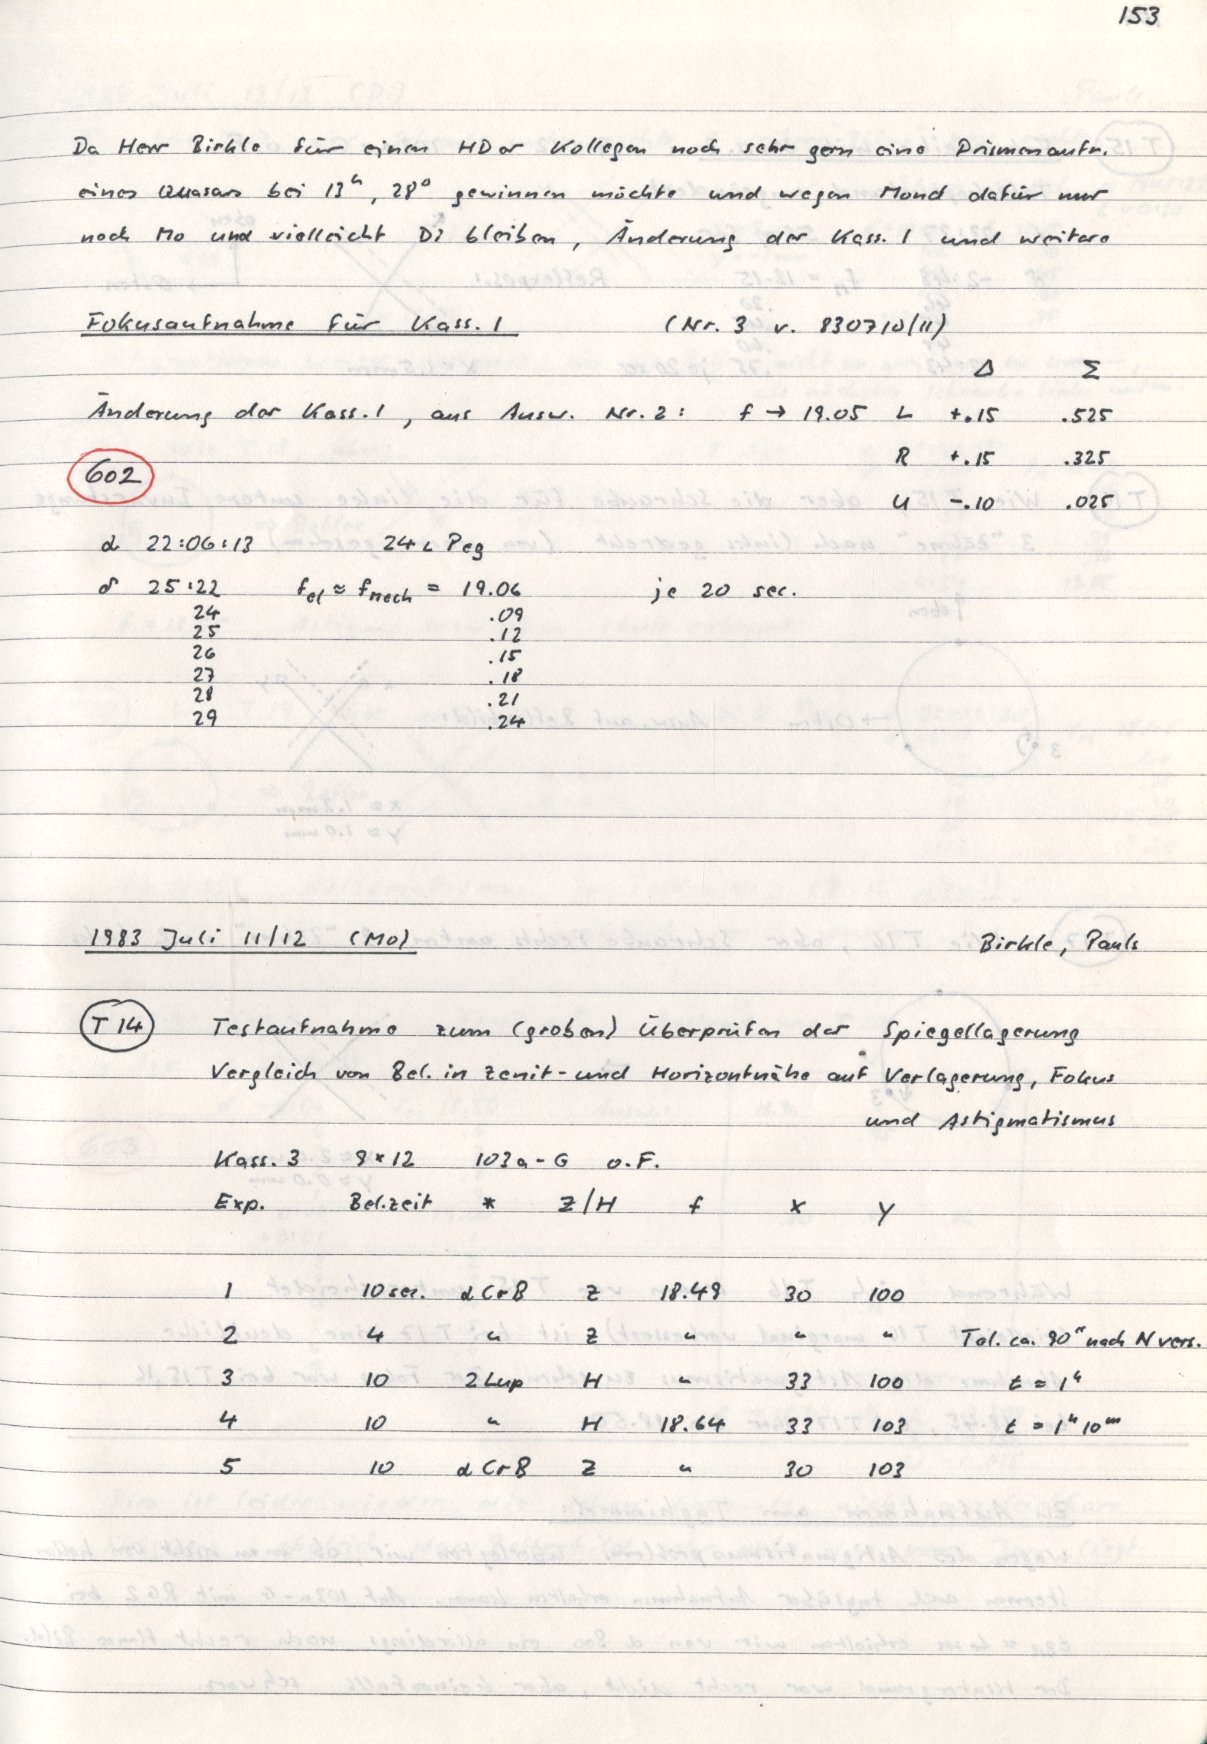 153
Da Herr Birkle für einen HDer Kollegen noch sehr gern eine Prismenaufn.
eines Quasars bei 13h, 28° gewinnen möchte und wegen Mond dafür nur
noch Mo und vielleicht Di bleiben, Änderung der Kass. 1 und weitere
Fokusaufnahme für Kass. 1 (Nr. 3 v. 830710/11)
Δ Σ
Änderung der Kass. 1, aus Ausw. Nr. 2: f → 19.05 L +.15 .525
R +.15 .325
602
U -.10 .025
α 22:06:13 24 ι Peg
δ 25:22 f_el ≈ f_mech = 19.06 je 20 sec.
24 .09
25 .12
26 .15
27 .18
28 .21
29 .24
1983 Juli 11/12 (Mo) Birkle, Pauls
T 14 Testaufnahme zum (groben) Überprüfen der Spiegellagerung
Vergleich von Bel. in Zenit- und Horizontnähe auf Verlagerung, Fokus
und Astigmatismus
Kass. 3 9*12 103a-G o.F.
Exp. Bel.zeit * Z/H f x y
1 10 sec. α CrB Z 18.49 30 100
2 4 " Z " " " Tel. ca. 90" nach N vers.
3 10 2 Lup H " 33 100 t = 1h
4 10 " H 18.64 33 103 t = 1h 10m
5 10 α CrB Z " 30 103